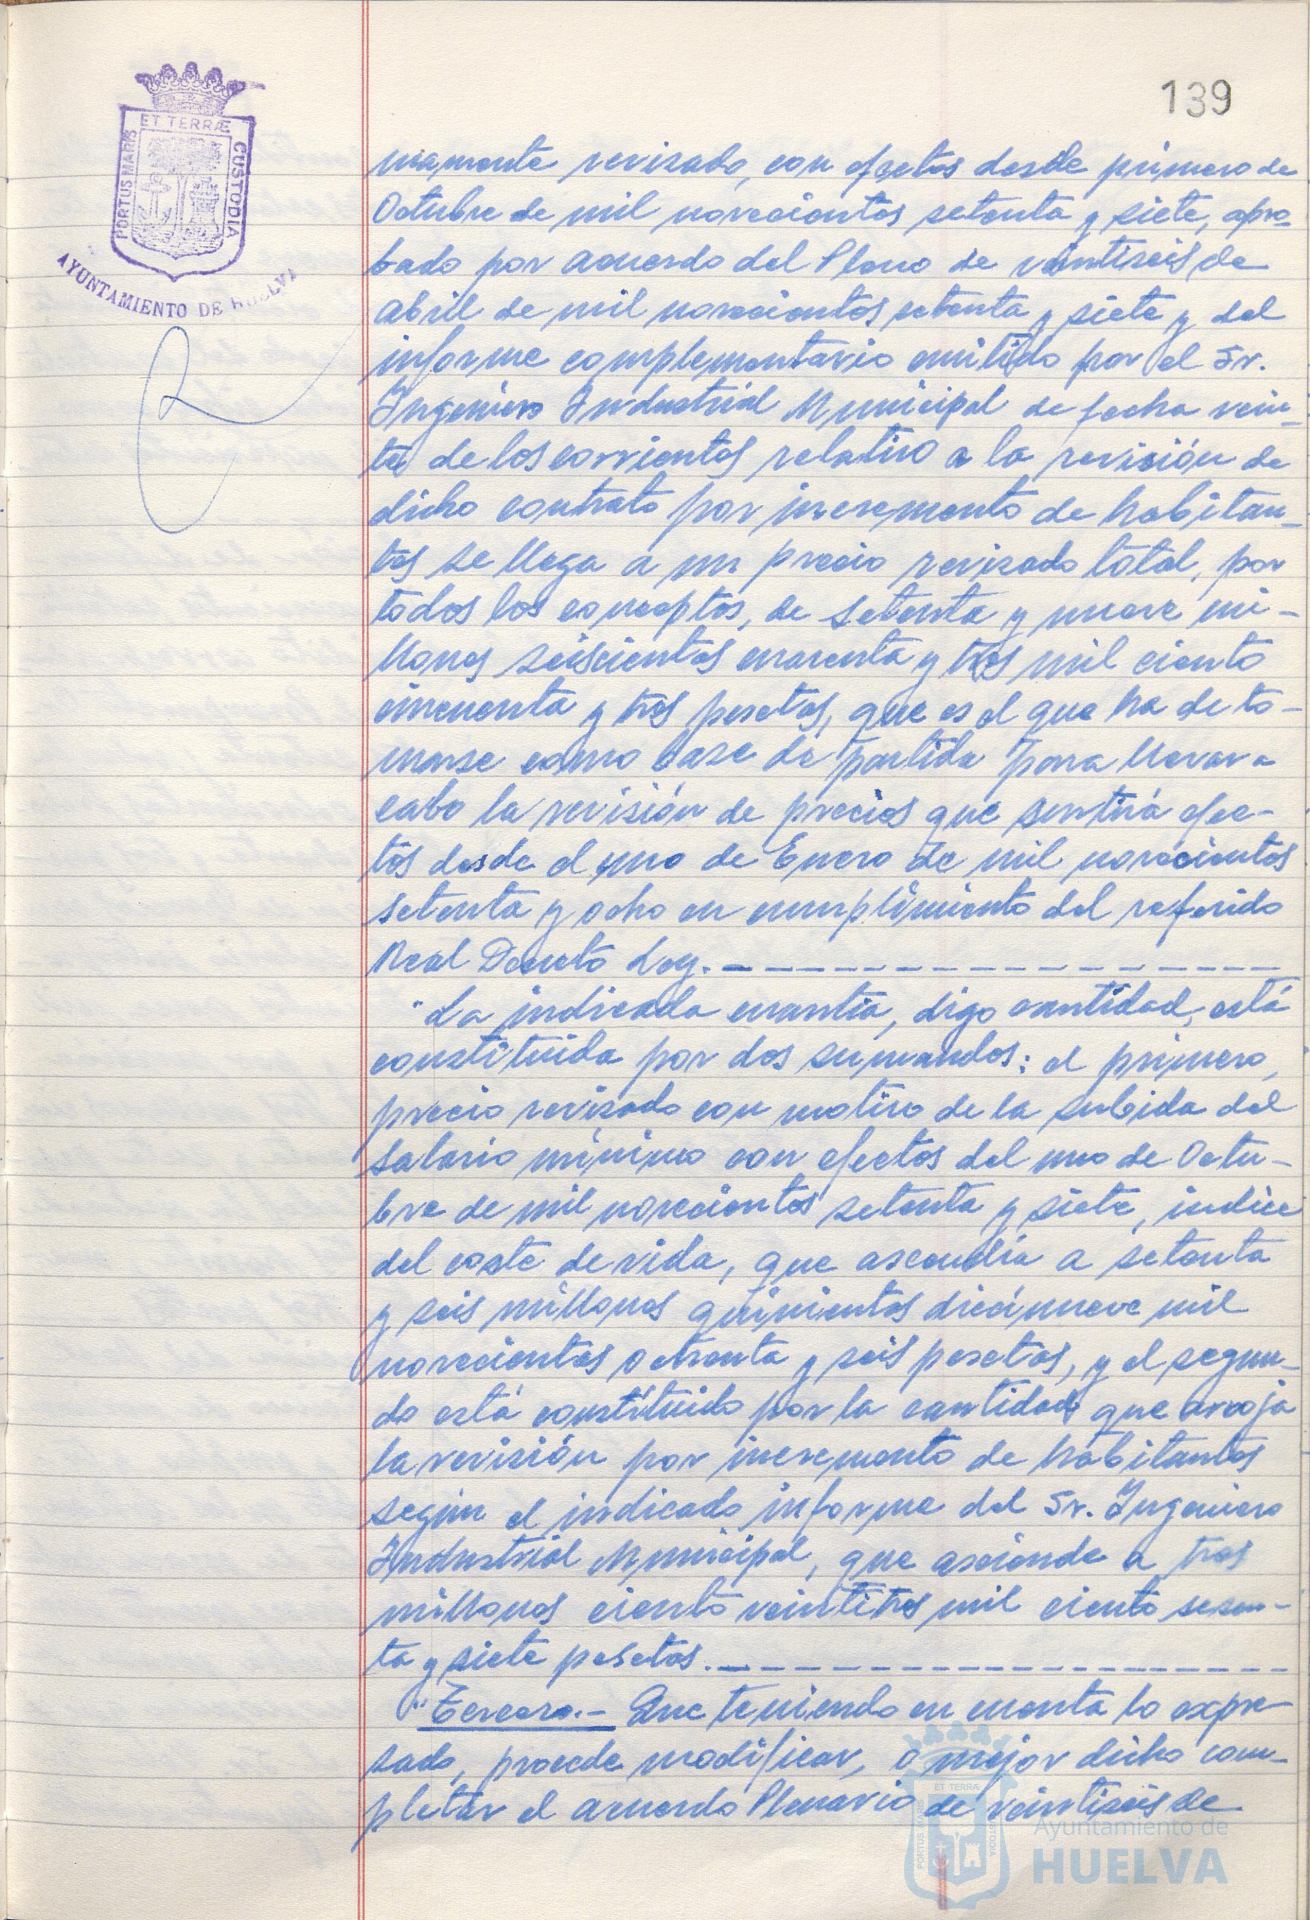 139
ET TERRÆ
PORTUS MARIS
CUSTODIA
AYUNTAMIENTO DE HUELVA
mamente revisado, con efectos desde primero de
Octubre de mil novecientos setenta y siete, apro-
bado por acuerdo del Pleno de veintiseis de
abril de mil novecientos setenta y siete y del
informe complementario emitido por el Sr.
Ingeniero Industrial Municipal de fecha vein-
te de los corrientes relativo a la revisión de
dicho contrato por incremento de habitan-
tes se llega a un precio revisado total, por
todos los conceptos, de setenta y nueve mi-
llones seiscientos cuarenta y tres mil ciento
cincuenta y tres pesetas, que es el que ha de to-
marse como base de partida para llevar a
cabo la revisión de precios que sentirá efec-
tos desde el uno de Enero de mil novecientos
setenta y ocho en cumplimiento del referido
Real Decreto Ley.
"La indicada cuantía, digo cantidad, está
constituida por dos sumandos: el primero,
precio revisado con motivo de la subida del
salario mínimo con efectos del uno de Octu-
bre de mil novecientos setenta y siete, indice
del coste de vida, que ascendía a setenta
y seis millones quinientos diecinueve mil
novecientos ochenta y seis pesetas, y el segun-
do está constituido por la cantidad que arroja
la revisión por incremento de habitantes
según el indicado informe del Sr. Ingeniero
Industrial Municipal, que asciende a tres
millones ciento veintitres mil ciento sesen-
ta y siete pesetas.
"Tercero.- Que teniendo en cuenta lo expre-
sado, procede modificar, o mejor dicho com-
pletar el acuerdo Plenario de veintiseis de
ET TERRÆ
PORTUS MARIS
CUSTODIA
Ayuntamiento de
HUELVA